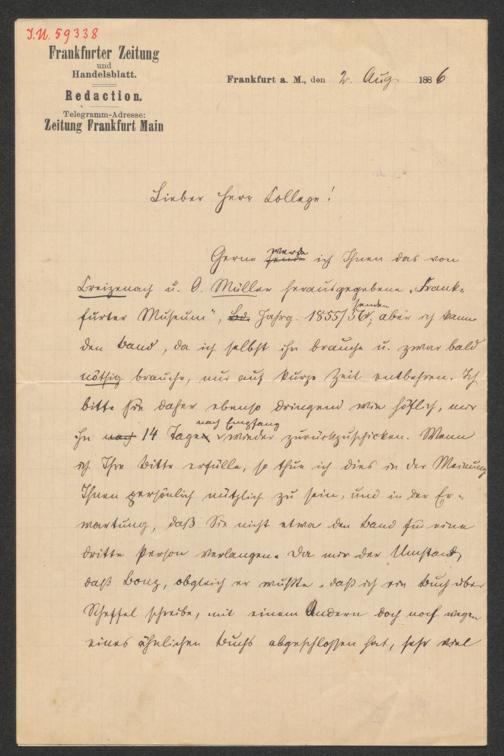 J.N. 59338
Frankfurter Zeitung
und
Handelsblatt.
Redaction.
Telegramm-Adresse:
Zeitung Frankfurt Main
Frankfurt a. M., den 2. Aug. 1886
Lieber Herr College!
Gerne werde ich Ihnen das von
Creizenach u. O. Müller herausgegebene „Frank-
furter Museum", Jahrg. 1855/56 senden, aber ich kann
den Band, da ich selbst ihn brauche u. zwar bald
nöthig brauche, nur auf kurze Zeit entbehren. Ich
bitte Sie daher ebenso dringend wie höflich, mir
ihn 14 Tage nach Empfang wieder zurückzuschicken. Wenn
ich Ihre Bitte erfülle, so thue ich dies in der Meinung
Ihnen persönlich nützlich zu sein, und in der Er-
wartung, daß Sie nicht etwa den Band für eine
dritte Person verlangen. Da mir der Umstand,
daß Bonz, obgleich er wußte, daß ich ein Buch über
Scheffel schreibe, mit einem Andern doch noch wegen
eines ähnlichen Buchs abgeschlossen hat, sehr viel